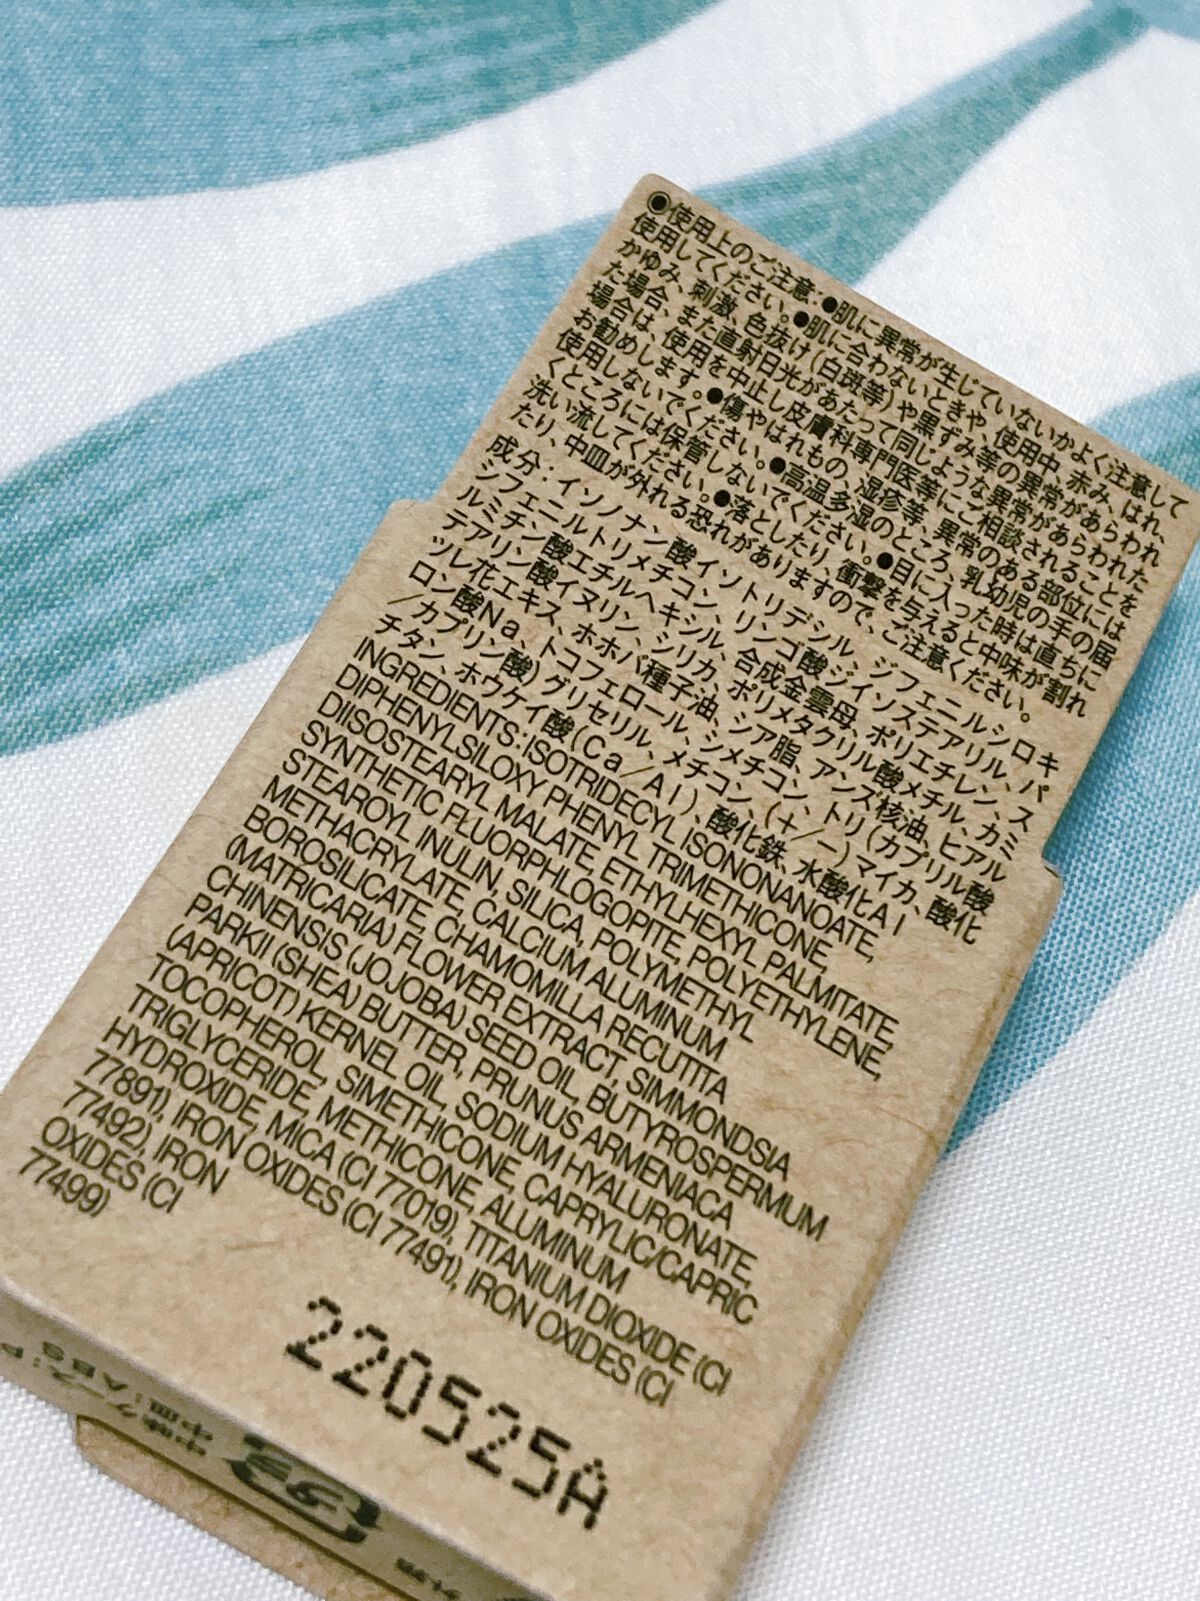 ◉使用上のご注意:●肌に異常が生じていないかよく注意して
使用してください。●肌に合わないときや、使用中、赤み、はれ、
かゆみ、刺激、色抜け(白斑等)や黒ずみ等の異常があらわれ
た場合、また直射日光があたって同じような異常があらわれた
場合は、使用を中止し皮膚科専門医等にご相談されることを
お勧めします。●傷やはれもの、湿疹等、異常のある部位には
使用しないでください。●目に入った時は直ちに
洗い流してください。●高温多湿のところ、乳幼児の手の届
くところには保管しないでください。●落としたり、衝撃を与えると中味が割れ
たり、中皿が外れる恐れがありますので、ご注意ください。
成分:イソノナン酸イソトリデシル、ジフェニルシロキ
シフェニルトリメチコン、リンゴ酸ジイソステアリル、パ
ルミチン酸エチルヘキシル、合成金雲母、ポリエチレン、ス
テアリン酸イヌリン、シリカ、ポリメタクリル酸メチル、カミ
ツレ花エキス、ホホバ種子油、シア脂、アンズ核油、ヒアル
ロン酸Na、トコフェロール、シメチコン、トリ(カプリル酸
/カプリン酸)グリセリル、メチコン、(+/-)マイカ、酸化
チタン、ホウケイ酸(Ca/Al)、酸化鉄、水酸化Al
INGREDIENTS:ISOTRIDECYL ISONONANOATE,
DIPHENYLSILOXY PHENYL TRIMETHICONE,
DIISOSTEARYL MALATE, ETHYLHEXYL PALMITATE,
SYNTHETIC FLUORPHLOGOPITE, POLYETHYLENE,
STEAROYL INULIN, SILICA, POLYMETHYL
METHACRYLATE, CALCIUM ALUMINUM
BOROSILICATE, CHAMOMILLA RECUTITA
(MATRICARIA) FLOWER EXTRACT, SIMMONDSIA
CHINENSIS (JOJOBA) SEED OIL, BUTYROSPERMUM
PARKII (SHEA) BUTTER, PRUNUS ARMENIACA
(APRICOT) KERNEL OIL, SODIUM HYALURONATE,
TOCOPHEROL, SIMETHICONE, CAPRYLIC/CAPRIC
TRIGLYCERIDE, METHICONE, ALUMINUM
HYDROXIDE, MICA (CI 77019), TITANIUM DIOXIDE (CI
77891), IRON OXIDES (CI 77491), IRON OXIDES (CI
77492), IRON
OXIDES (CI
77499)
220525A
中皿:ABS